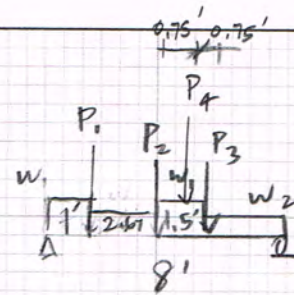 0.75' 0.75'
P4
P1
P2 P3
w1 w2
1' 2.67 1.5'
8'